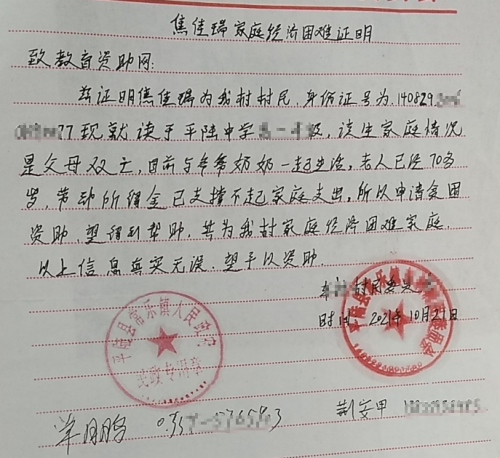 焦佳瑞家庭经济困难证明
致教育资助网:
兹证明焦佳瑞为我村村民,身份证号为140829
77现就读于平陆中学高一 级,该生家庭情况
是父母双亡,目前与爷爷奶奶一起生活,老人已经70多
岁,劳动所得全已支撑不起家庭支出,所以申请贫困
资助,望得到帮助,其为我村家庭经济困难家庭.
以上信息真实无误,望予以资助.
村居委会
时间 2021年10月29日
平陆县常乐镇人民政府
民政专用章
平陆县
荆安甲